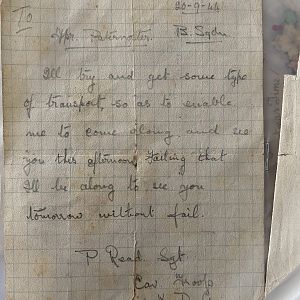 20-9-44
To
Spr. Paternoster. B. Sqdn
I'll try and get some type
of transport, so as to enable
me to come along and see
you this afternoon, failing that
I'll be along to see you
tomorrow without fail.
P. Read. Sgt.
Cav. Troop